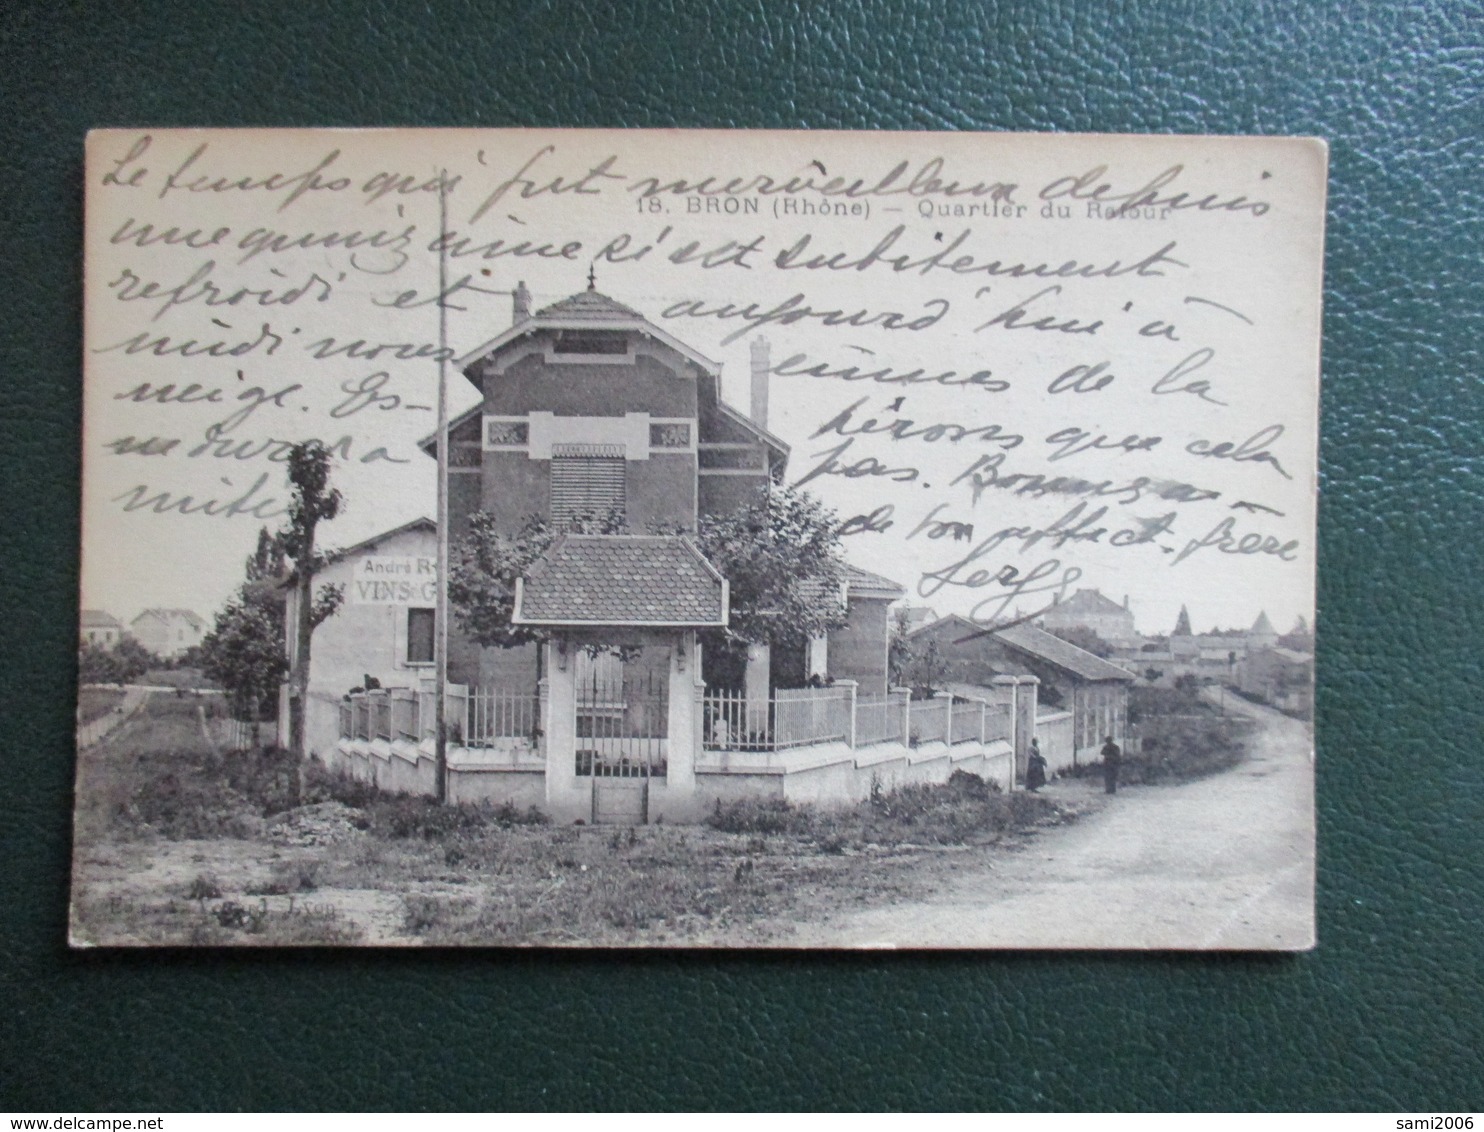 Le temps qui fut merveilleux depuis
18. BRON (Rhône) — Quartier du Ratour
une quinzaine s'est subitement
refroidi et aujourd'hui à
midi nous eûmes de la
neige. Es- pérons que cela
ne durera pas. Bonnes
de ton affect. frère
Serge
André
VINS
Lyon
sami2006